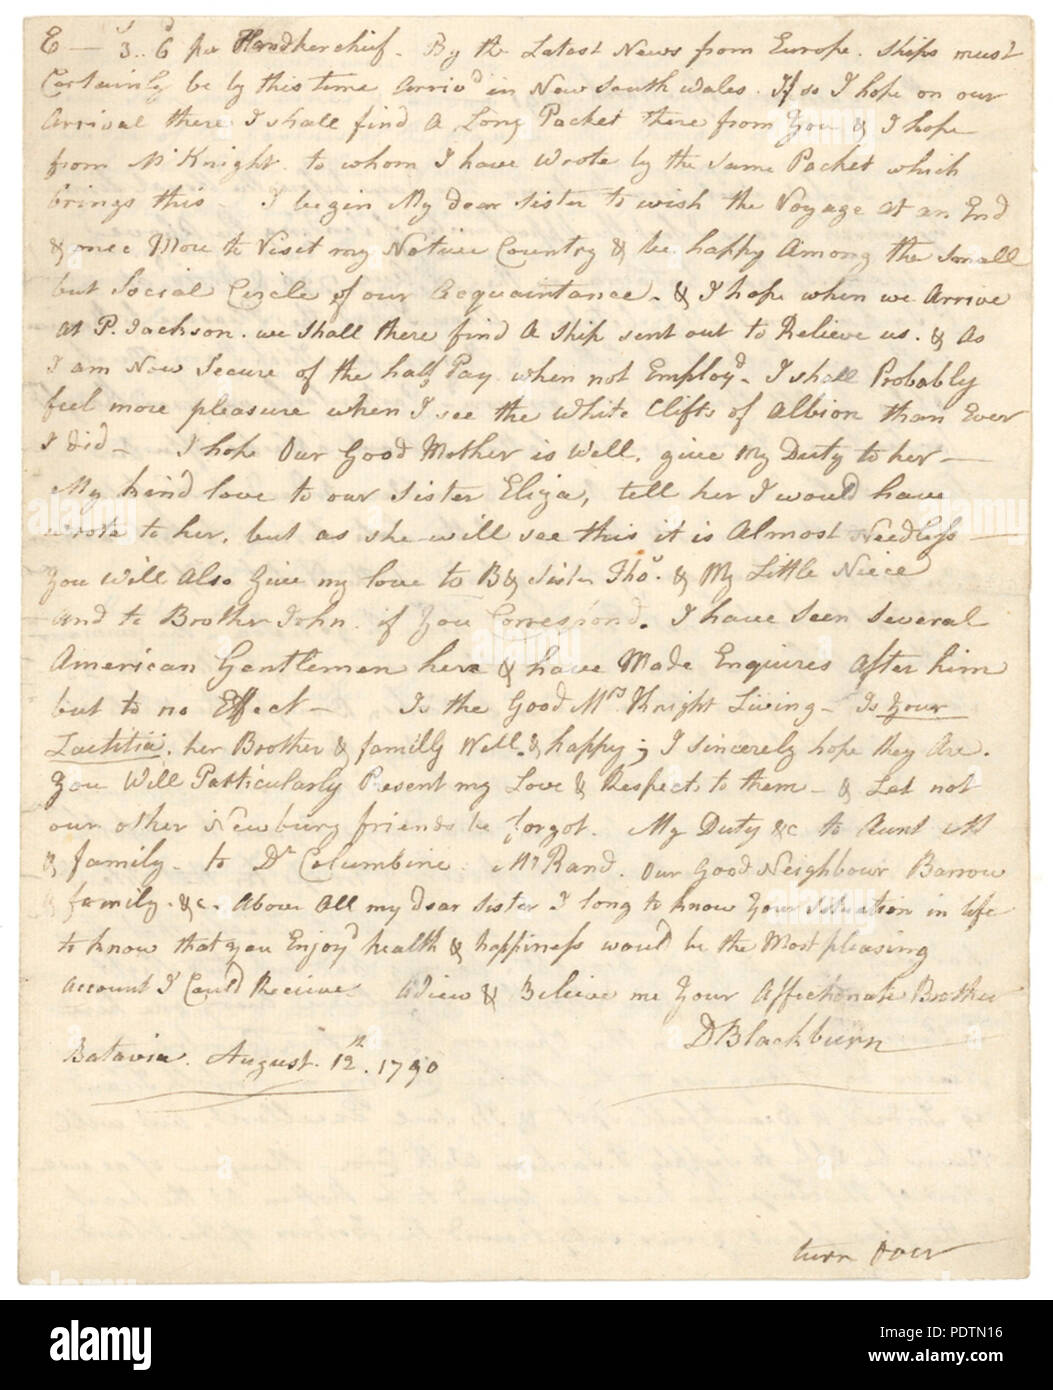 E — 3s.. 6d per Handkerchief - By the Latest News from Europe. Ships must
Certainly be by this time Arriv'd in New South Wales. If so I hope on our
Arrival there I shall find A Long Packet there from You & I hope
from Mr Knight. to whom I have Wrote by the same Packet which
brings this - I begin My dear Sister to wish the Voyage at an End
& once More to Visit my Native Country & be happy Among the small
but Social Circle of our Acquaintance. & I hope when we Arrive
at P. Jackson. we shall there find A Ship sent out to Relieve us. & As
I am Now Secure of the half Pay when not Employd. I shall Probably
feel more pleasure when I see the White Clifts of Albion than Ever
I did - I hope Our Good Mother is Well, give My Duty to her —
My kind love to our Sister Eliza, tell her I would have
wrote to her, but as she will see this it is Almost Needless —
You Will Also Give my love to Br & Sister Thos. & My Little Niece
And to Brother John if You Correspond. I have Seen Several
American Gentlemen here & have Made Enquires After him
but to no Effect — Is the Good Mrs Knight Living - Is Your
Laetitia. her Brother & familly Well. & happy; I sincerely hope they Are.
You Will Particularly Present my Love & Respects to them - & Let not
our other Newburg friends be forgot. My Duty &c to Aunt M
& family - to Dr Columbine. Mr Rand. Our Good Neighbour Barrow
& family. &c. Above All my dear Sister I long to know Your Situation in life
to know that you Enjoy'd health & happiness would be the Most pleasing
Account I Could Receive Adieu & Believe me Your Affectionate Brother
D Blackburn
Batavia. August. 12th. 1790
turn Over
alamy
Image ID: PDTN16
www.alamy.com